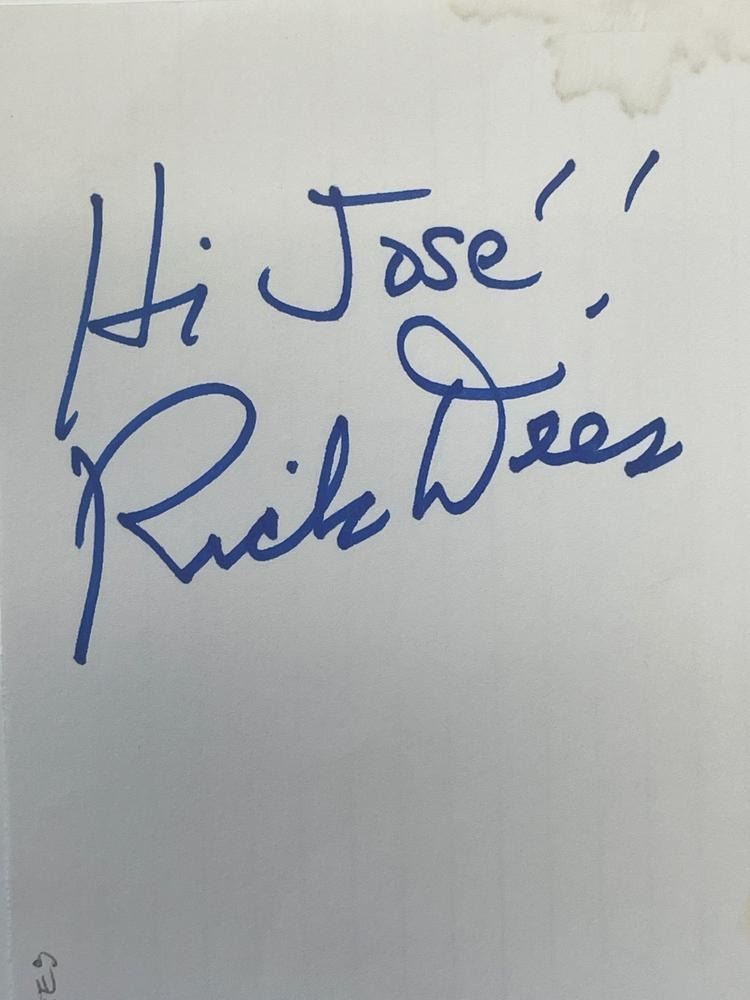 Hi José!
Rick Dees